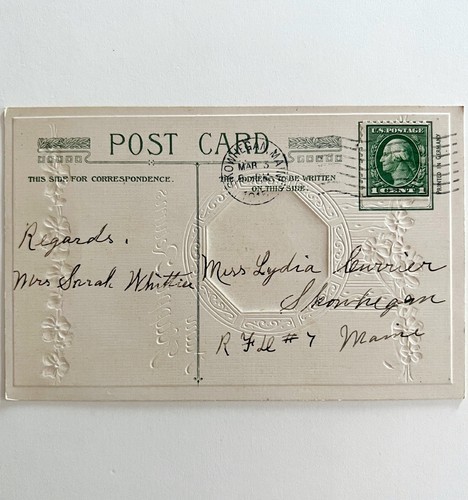 POST CARD
THIS SIDE FOR CORRESPONDENCE.
THE ADDRESS TO BE WRITTEN
ON THIS SIDE.
SKOWHEGAN
MAR 3
U.S. POSTAGE
1 CENT 1
PRINTED IN GERMANY
Regards.
Mrs Sarah Whittier
Miss Lydia Currier
Skowhegan
R F D # 7 Maine